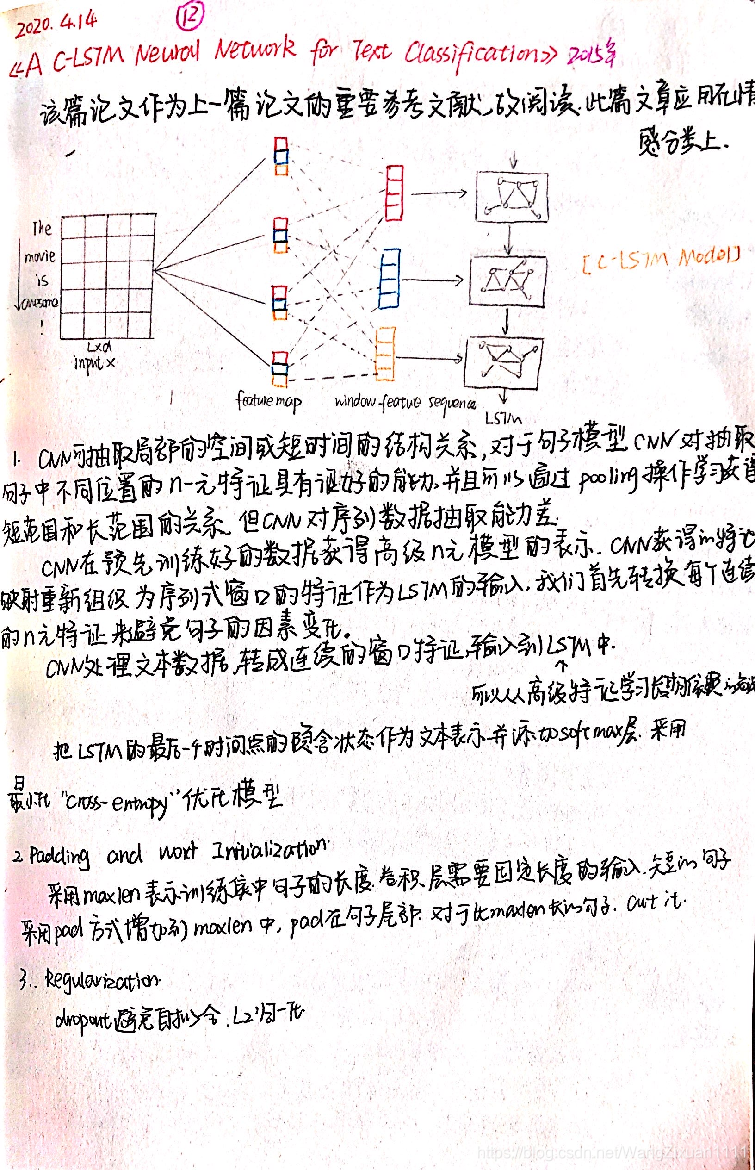 2020.4.14
12
《A C-LSTM Neural Network for Text Classification》2015年
该篇论文作为上一篇论文的重要参考文献,故阅读.此篇文章应用在情
感分类上.
The
movie
is
awesome
!
L×d
input x
feature map
window feature sequence
LSTM
[C-LSTM Model]
1. CNN可抽取局部的空间或短时间的结构关系,对于句子模型CNN对抽取
句子中不同位置的n-元特证具有很好的能力.并且可以通过pooling操作学习获得
短范围和长范围的关系.但CNN对序列数据抽取能力差.
CNN在预先训练好的数据获得高级n元模型的表示.CNN获得的特证
映射重新组织为序列式窗口的特证作为LSTM的输入.我们首先转换每个连续
的n元特证来避免句子的因素变化。
CNN处理文本数据,转成连续的窗口特证,输入到LSTM中.
可以从高级特证学习长期依赖
把LSTM的最后一个时间点的隐含状态作为文本表示并添加softmax层.采用
最小化"cross-entropy"优化模型
2 Padding and word Initialization
采用maxlen表示训练集中句子的长度.卷积层需要固定长度的输入.短的句子
采用pad方式增加到maxlen中,pad在句子尾部.对于比maxlen长的句子.cut it.
3. Regularization
dropout避免自拟合.L2归一化
https://blog.csdn.net/WangZixuan1111